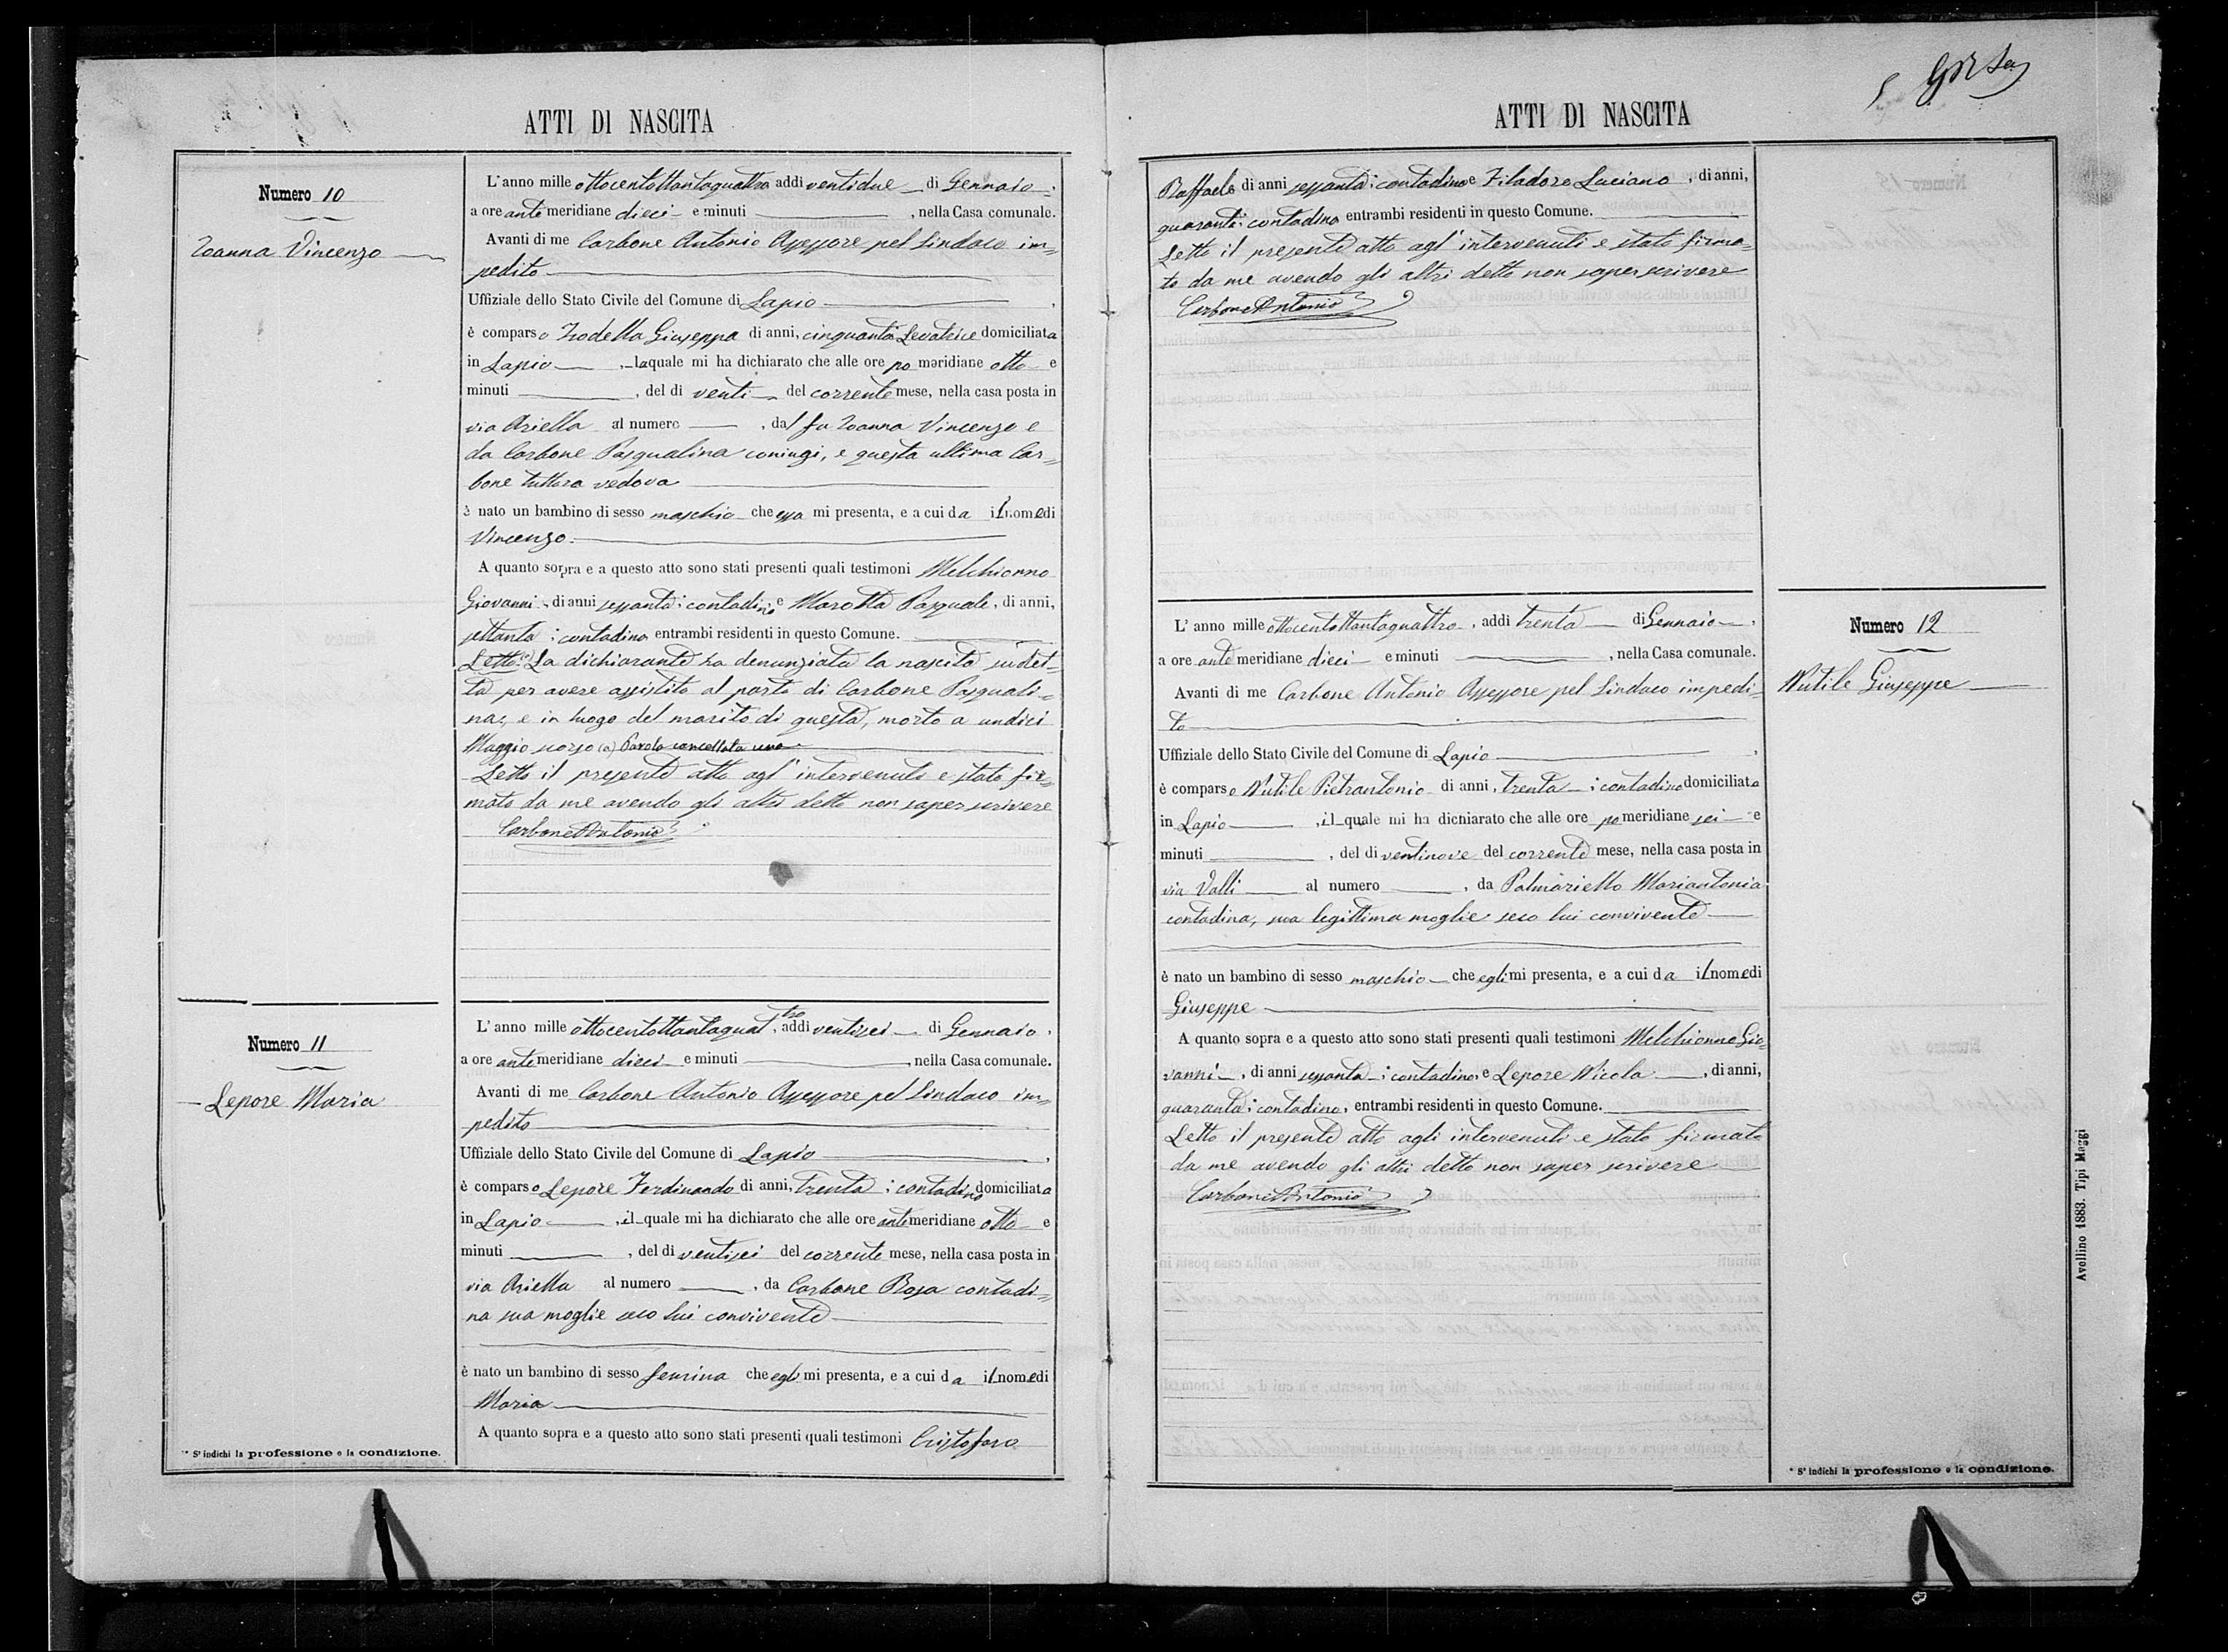 ATTI DI NASCITA
Numero 10
Zoanna Vincenzo
L'anno mille ottocentottantaquattro addi ventidue di Gennaio,
a ore antemeridiane dieci e minuti , nella Casa comunale.
Avanti di me Carbone Antonio Assessore pel Sindaco im=
pedito
Uffiziale dello Stato Civile del Comune di Lapio ,
è comparso Giuseppa di anni, cinquanta Levatrice domiciliata
in Lapio , laquale mi ha dichiarato che alle ore pomeridiane otto e
minuti , del di venti del corrente mese, nella casa posta in
via Ariella al numero , dal fu Zoanna Vincenzo e
da Carbone Pasqualina coniugi, e questa ultima Car=
bone tuttora vedova
è nato un bambino di sesso maschio che essa mi presenta, e a cui da il nome di
Vincenzo.
A quanto sopra e a questo atto sono stati presenti quali testimoni Melchionno
Giovanni, di anni sessanta: contadino e Marotta Pasquale, di anni,
settanta: contadino entrambi residenti in questo Comune.
Letto(a) La dichiarante ha denunziata la nascita sudet=
ta per avere assistito al parto di Carbone Pasquali=
na, e in luogo del marito di questa, morto a undici
Maggio scorso (a) Parola cancellata una
Letto il presente atto agl'intervenuti e stato fir=
mato da me avendo gli altri detto non saper scrivere
Carbone Antonio
Numero 11
Lepore Maria
L'anno mille ottocentottantaquattro, addi ventisei di Gennaio,
a ore antemeridiane dieci e minuti , nella Casa comunale.
Avanti di me Carbone Antonio Assessore pel Sindaco im=
pedito
Uffiziale dello Stato Civile del Comune di Lapio ,
è comparso Lepore Ferdinando di anni, trenta: contadino domiciliato
in Lapio , il quale mi ha dichiarato che alle ore antemeridiane otto e
minuti , del di ventisei del corrente mese, nella casa posta in
via Ariella al numero , da Carbone Rosa contadi=
na sua moglie seco lui convivente
è nato un bambino di sesso femina che egli mi presenta, e a cui da il nome di
Maria
A quanto sopra e a questo atto sono stati presenti quali testimoni Cristofaro
* S'indichi la professione o la condizione.
5
ATTI DI NASCITA
Raffaele di anni sessanta: contadino e Filadoro Luciano, di anni,
quaranta: contadino entrambi residenti in questo Comune.
Letto il presente atto agl'intervenuti e stato firma=
to da me avendo gli altri detto non saper scrivere
Carbone Antonio
Numero 12
Nutile Giuseppe
L'anno mille ottocentottantaquattro, addi trenta di Gennaio,
a ore antemeridiane dieci e minuti , nella Casa comunale.
Avanti di me Carbone Antonio Assessore pel Sindaco impedi=
to
Uffiziale dello Stato Civile del Comune di Lapio ,
è comparso Nutile Pietrantonio di anni, trenta: contadino domiciliato
in Lapio , il quale mi ha dichiarato che alle ore pomeridiane sei e
minuti , del di ventinove del corrente mese, nella casa posta in
via Valli al numero , da Palmariello Mariantonia
contadina, sua legittima moglie seco lui convivente
è nato un bambino di sesso maschio che egli mi presenta, e a cui da il nome di
Giuseppe
A quanto sopra e a questo atto sono stati presenti quali testimoni Melchionno Gio=
vanni, di anni sessanta: contadino, e Lepore Nicola, di anni,
quaranta: contadino, entrambi residenti in questo Comune.
Letto il presente atto agli intervenuti e stato firmato
da me avendo gli altri detto non saper scrivere
Carbone Antonio
* S'indichi la professione o la condizione.
Avellino 1883. Tipi Maggi